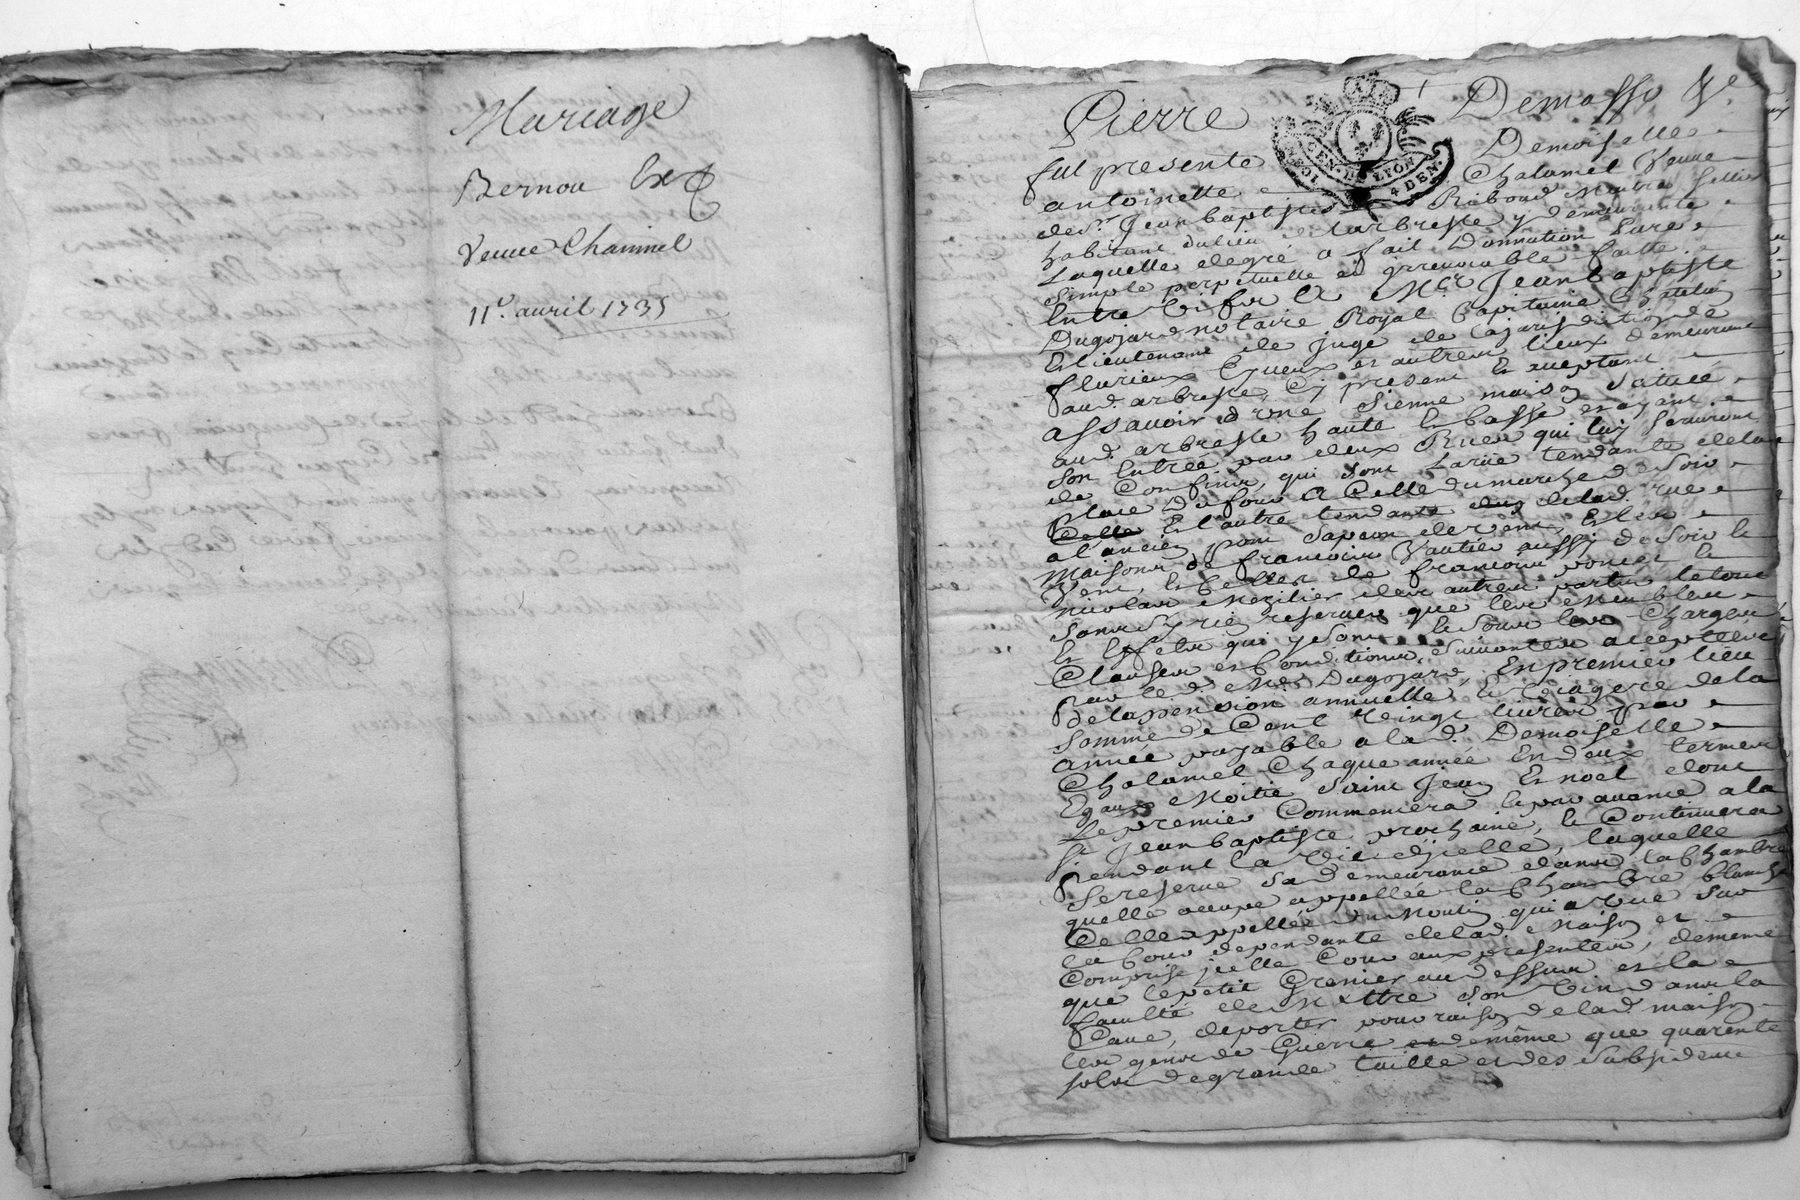 Mariage
Bernou Et
Veuve Chaminel
11e. avril 1735
Pierre Demasso Sr.
GEN. DE LYON
4 DEN.
fut presente Demoiselle
antoinette Chalamel Veuve
de Sr. Jean baptiste Riboud Maitre Sellier
habitant du lieu de Larbresle y demeurante
Laquelle de gré a fait Donnation pure
Simple perpetuelle et irrevocable faitte
Entre vifs A Mer Jean baptiste
Dugojard notaire Royal Capitaine Chatelain
Et lieutenant de juge de la jurisdiction de
fleurieux Eyveux et autres lieux demeurant
aud. arbresle, Cy present Et acceptant
assavoir d'vne Sienne maison Scituée
aud. arbresle haute Et basse et ayant
Son Entrée par deux Rues qui luy Servent
de Confins, qui Sont La rüe tendante de la
place du four A Celle du marché de Soir
Celle Et l'autre tendante de lad. rue
a l'ancien pont Sapeur de vent, Et les
Maisons de francois Vautier aussy de Soir Et
Vent, Et Celles de francois poncet Et
Nicolas Mezilier des autres parties le tout
Sans S'y rien reserver que les Meubles
Et Effets qui y Sont Et Sous les Charges
Clauses et Conditions Suivantes acceptées
Par led. Me. Dugojard, En premier lieu
De la pension annuelle Et Viagere de la
Somme de Cent vingt livres par
année payable a lad. Demoiselle
Chalamel Chaque année En deux termes
Egaux Moitié Saint Jean Et noel dont
Le premier Commencera Et par avance a la
St. Jean baptiste prochaine, Et Continuera
Pendant la Vie d'jcelle, laquelle
Se reserve Sa demeurance dans la Chambre
quelle occupe appellée la Chambre blanche
Celle appellée du Moulin qui a vue Sur
la Cour dependante de lad. Maison et
Comprise jcelle Cour aux presentes, de meme
que le petit Grenier au dessus et la
faculté de Mettre Son Vin dans la
Cave, de porter pour raison de lad. maison
les gens de Guerre de même que quarente
sols de grande taille et des Subsides